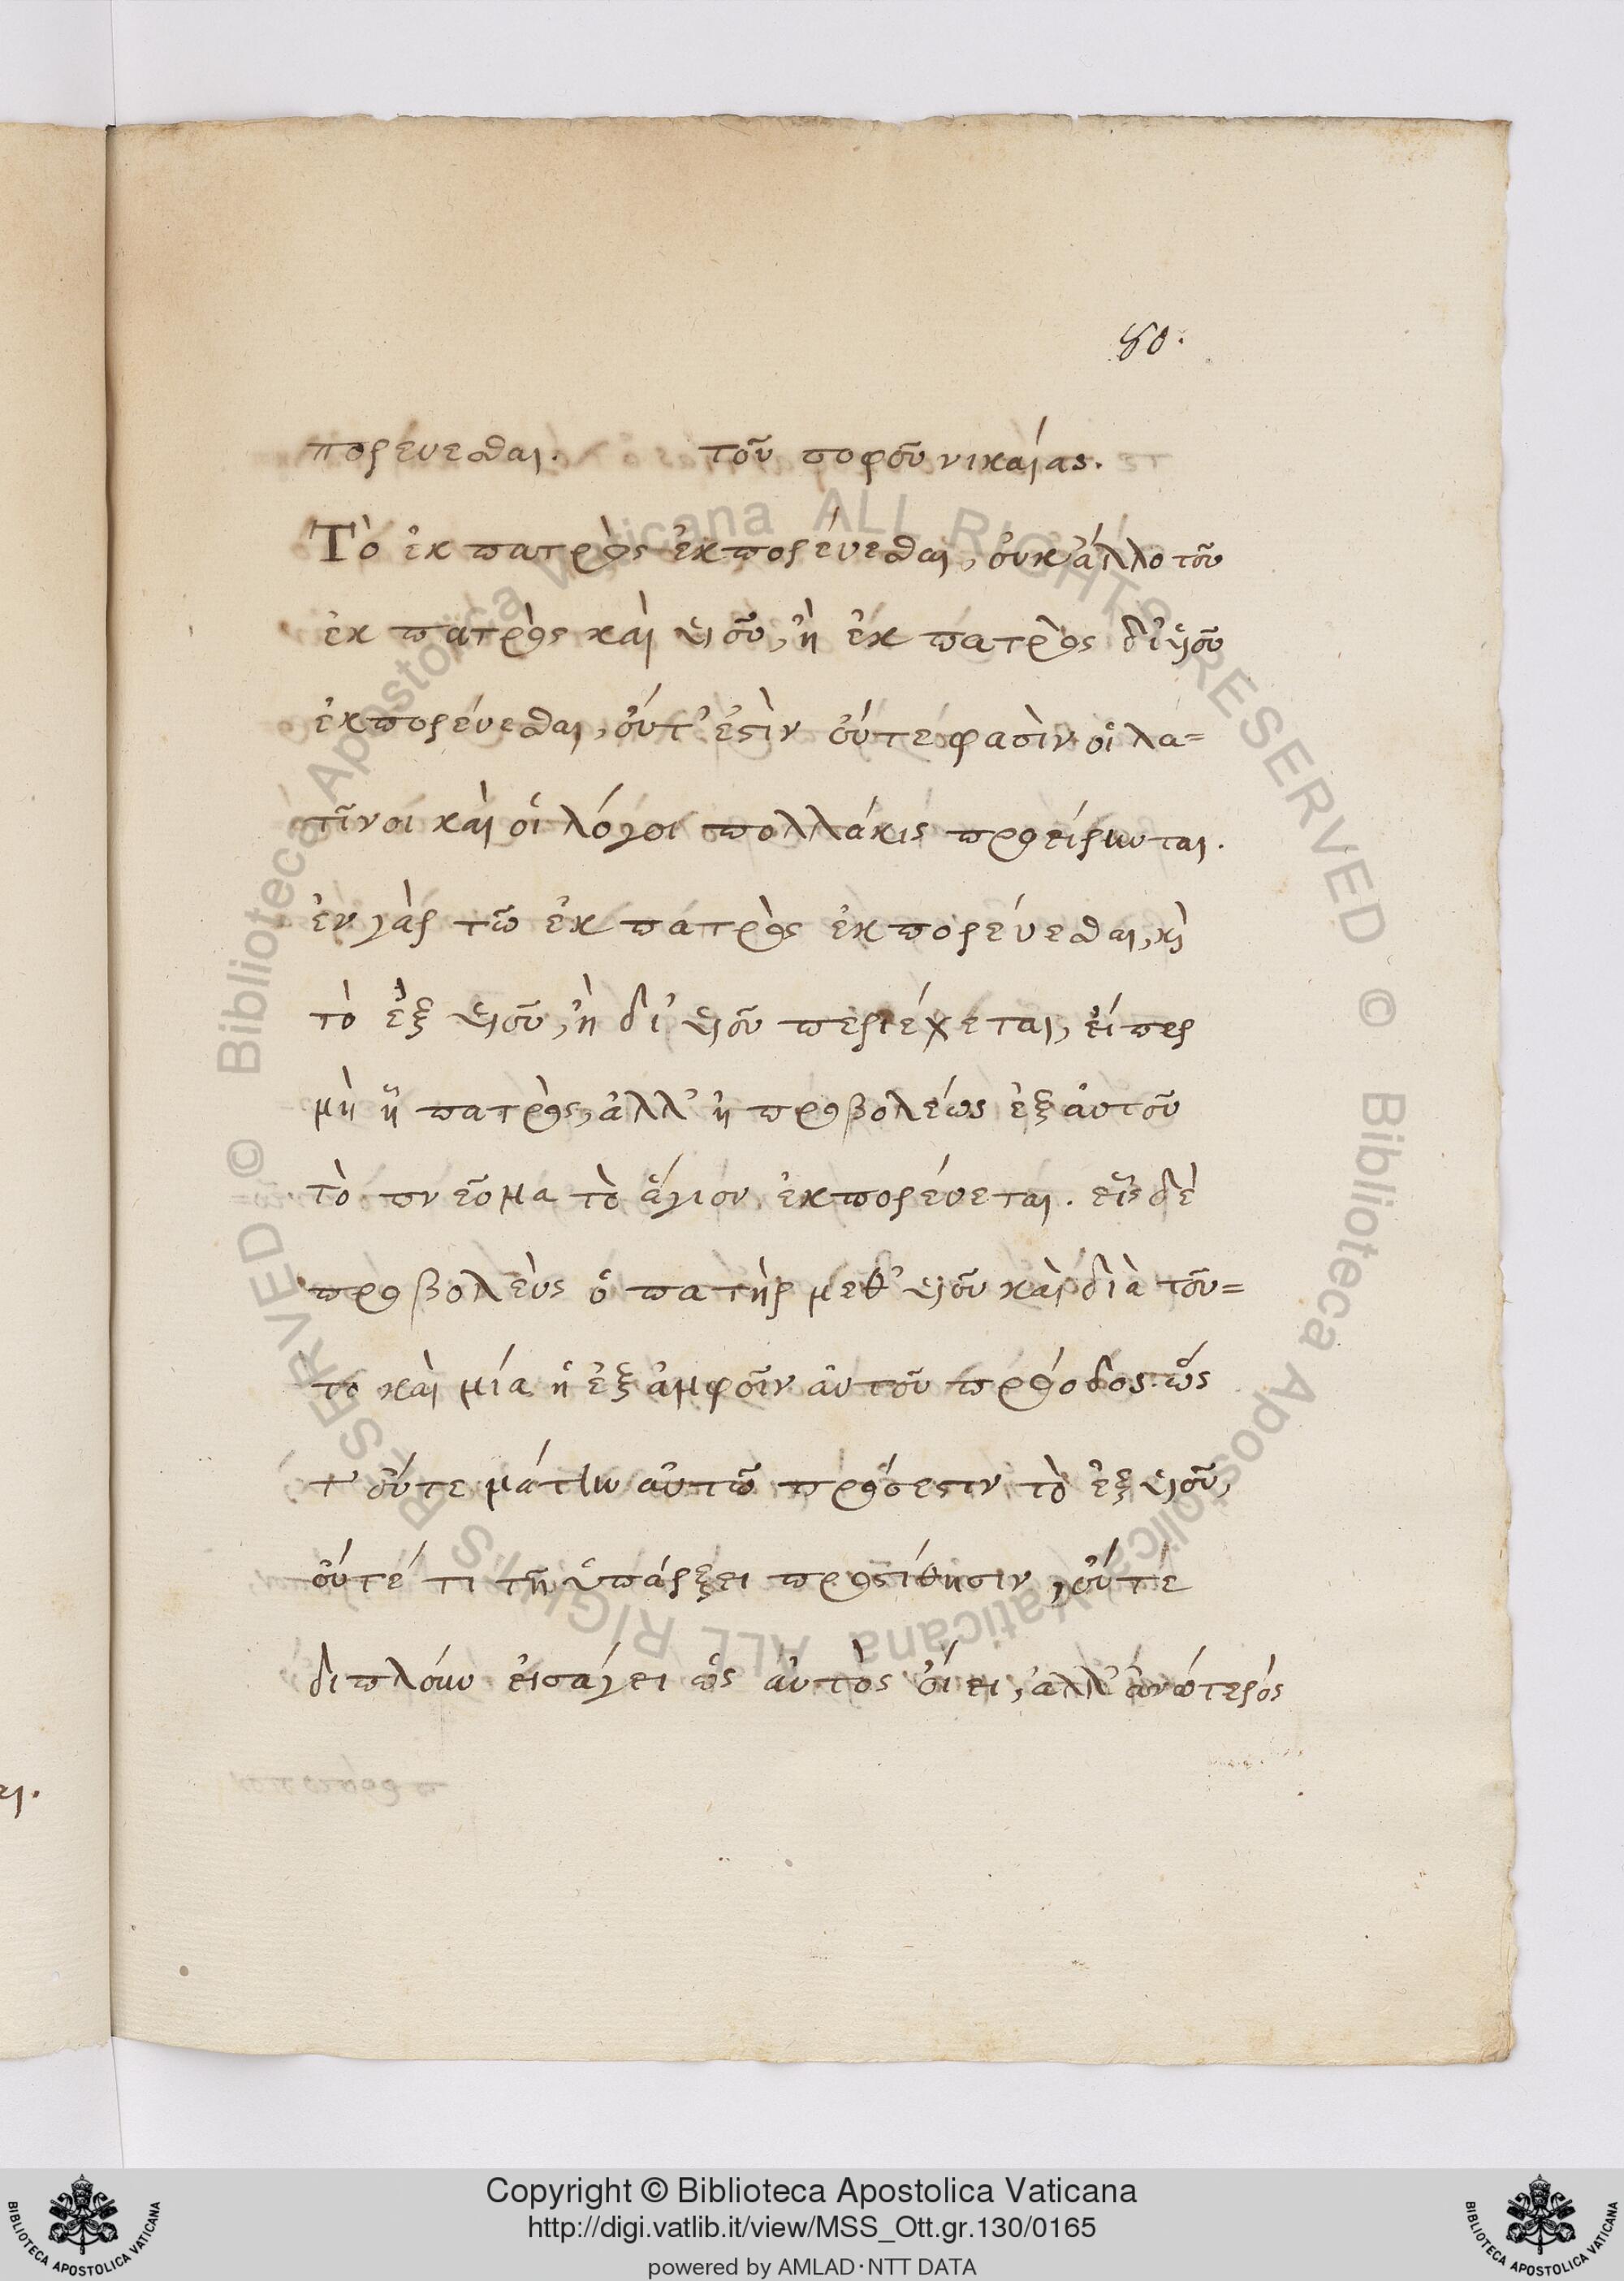 80.
πορεύεσθαι. τοῦ σοφοῦ νικαίας.
Τὸ ἐκ πατρὸς ἐκπορεύεσθαι, οὐκ ἄλλο τοῦ
ἐκ πατρὸς καὶ υἱοῦ, ἢ ἐκ πατρὸς δι' υἱοῦ
ἐκπορεύεσθαι, οὔτ' ἐστὶν οὔτέ φασὶν οἱ λα=
τῖνοι καὶ οἱ λόγοι πολλάκις προείρηνται.
ἐν γὰρ τῶ ἐκ πατρὸς ἐκπορεύεσθαι, κὶ
τὸ ἐξ υἱοῦ, ἢ δι' υἱοῦ περιέχεται, εἴπερ
μὴ ἧ πατρὸς, ἀλλ' ἧ προβολέως ἐξ αὐτοῦ
τὸ πνεῦμα τὸ ἅγιον ἐκπορεύεται. εἷς δὲ
προβολεὺς ὁ πατὴρ μεθ' υἱοῦ καὶ διὰ τοῦ=
το καὶ μία ἡ ἐξ ἀμφοῖν αὐτοῦ πρόοδος. ὥς
τ' οὔτε μάτην αὐτῶ πρόσεστιν τὸ ἐξ υἱοῦ,
οὔτέ τι τῆ ὑπάρξει προστίθησιν, οὔτέ
διπλόην εἰσάγει ὡς αὐτὸς οἴει, ἀλλ' ἀνώτερός
Copyright © Biblioteca Apostolica Vaticana
http://digi.vatlib.it/view/MSS_Ott.gr.130/0165
powered by AMLAD·NTT DATA
BIBLIOTECA APOSTOLICA VATICANA
BIBLIOTECA APOSTOLICA VATICANA
© Biblioteca Apostolica Vaticana ALL RIGHTS RESERVED
© Biblioteca Apostolica Vaticana ALL RIGHTS RESERVED